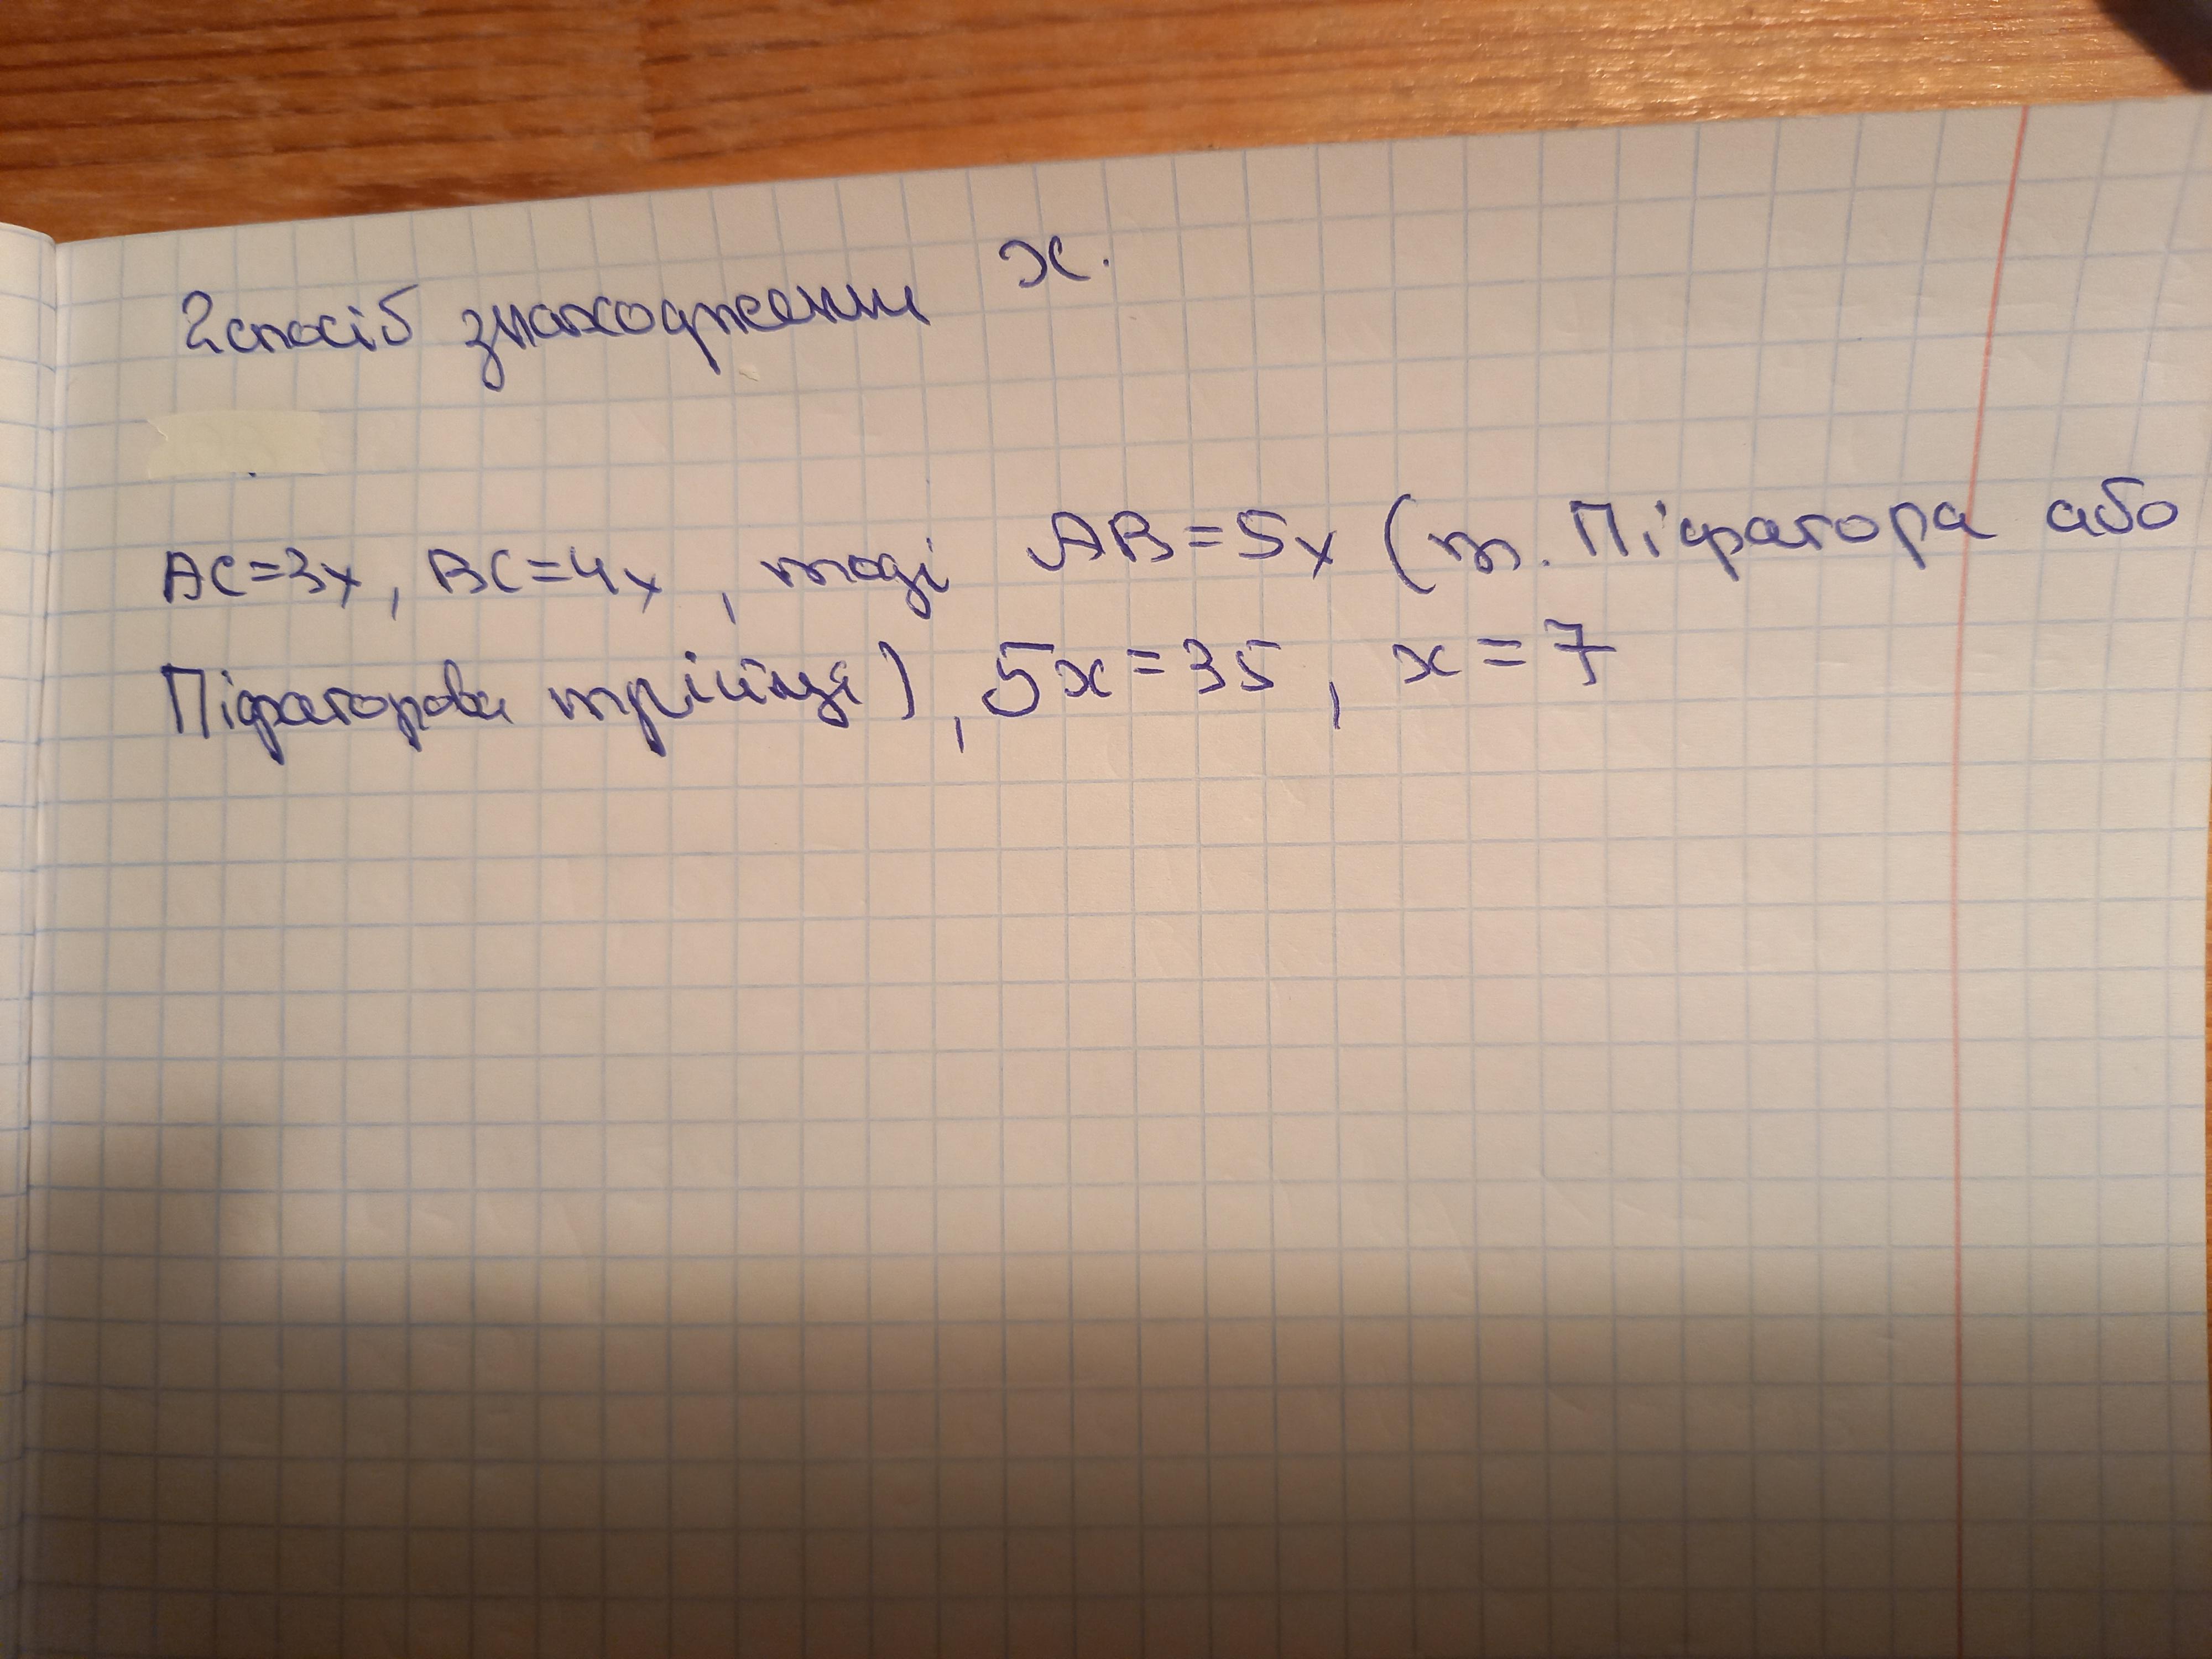 2 спосіб знаходження x.
AC=3x, BC=4x, тоді AB=5x (т. Піфагора або
Піфагорова трійця), 5x=35, x=7